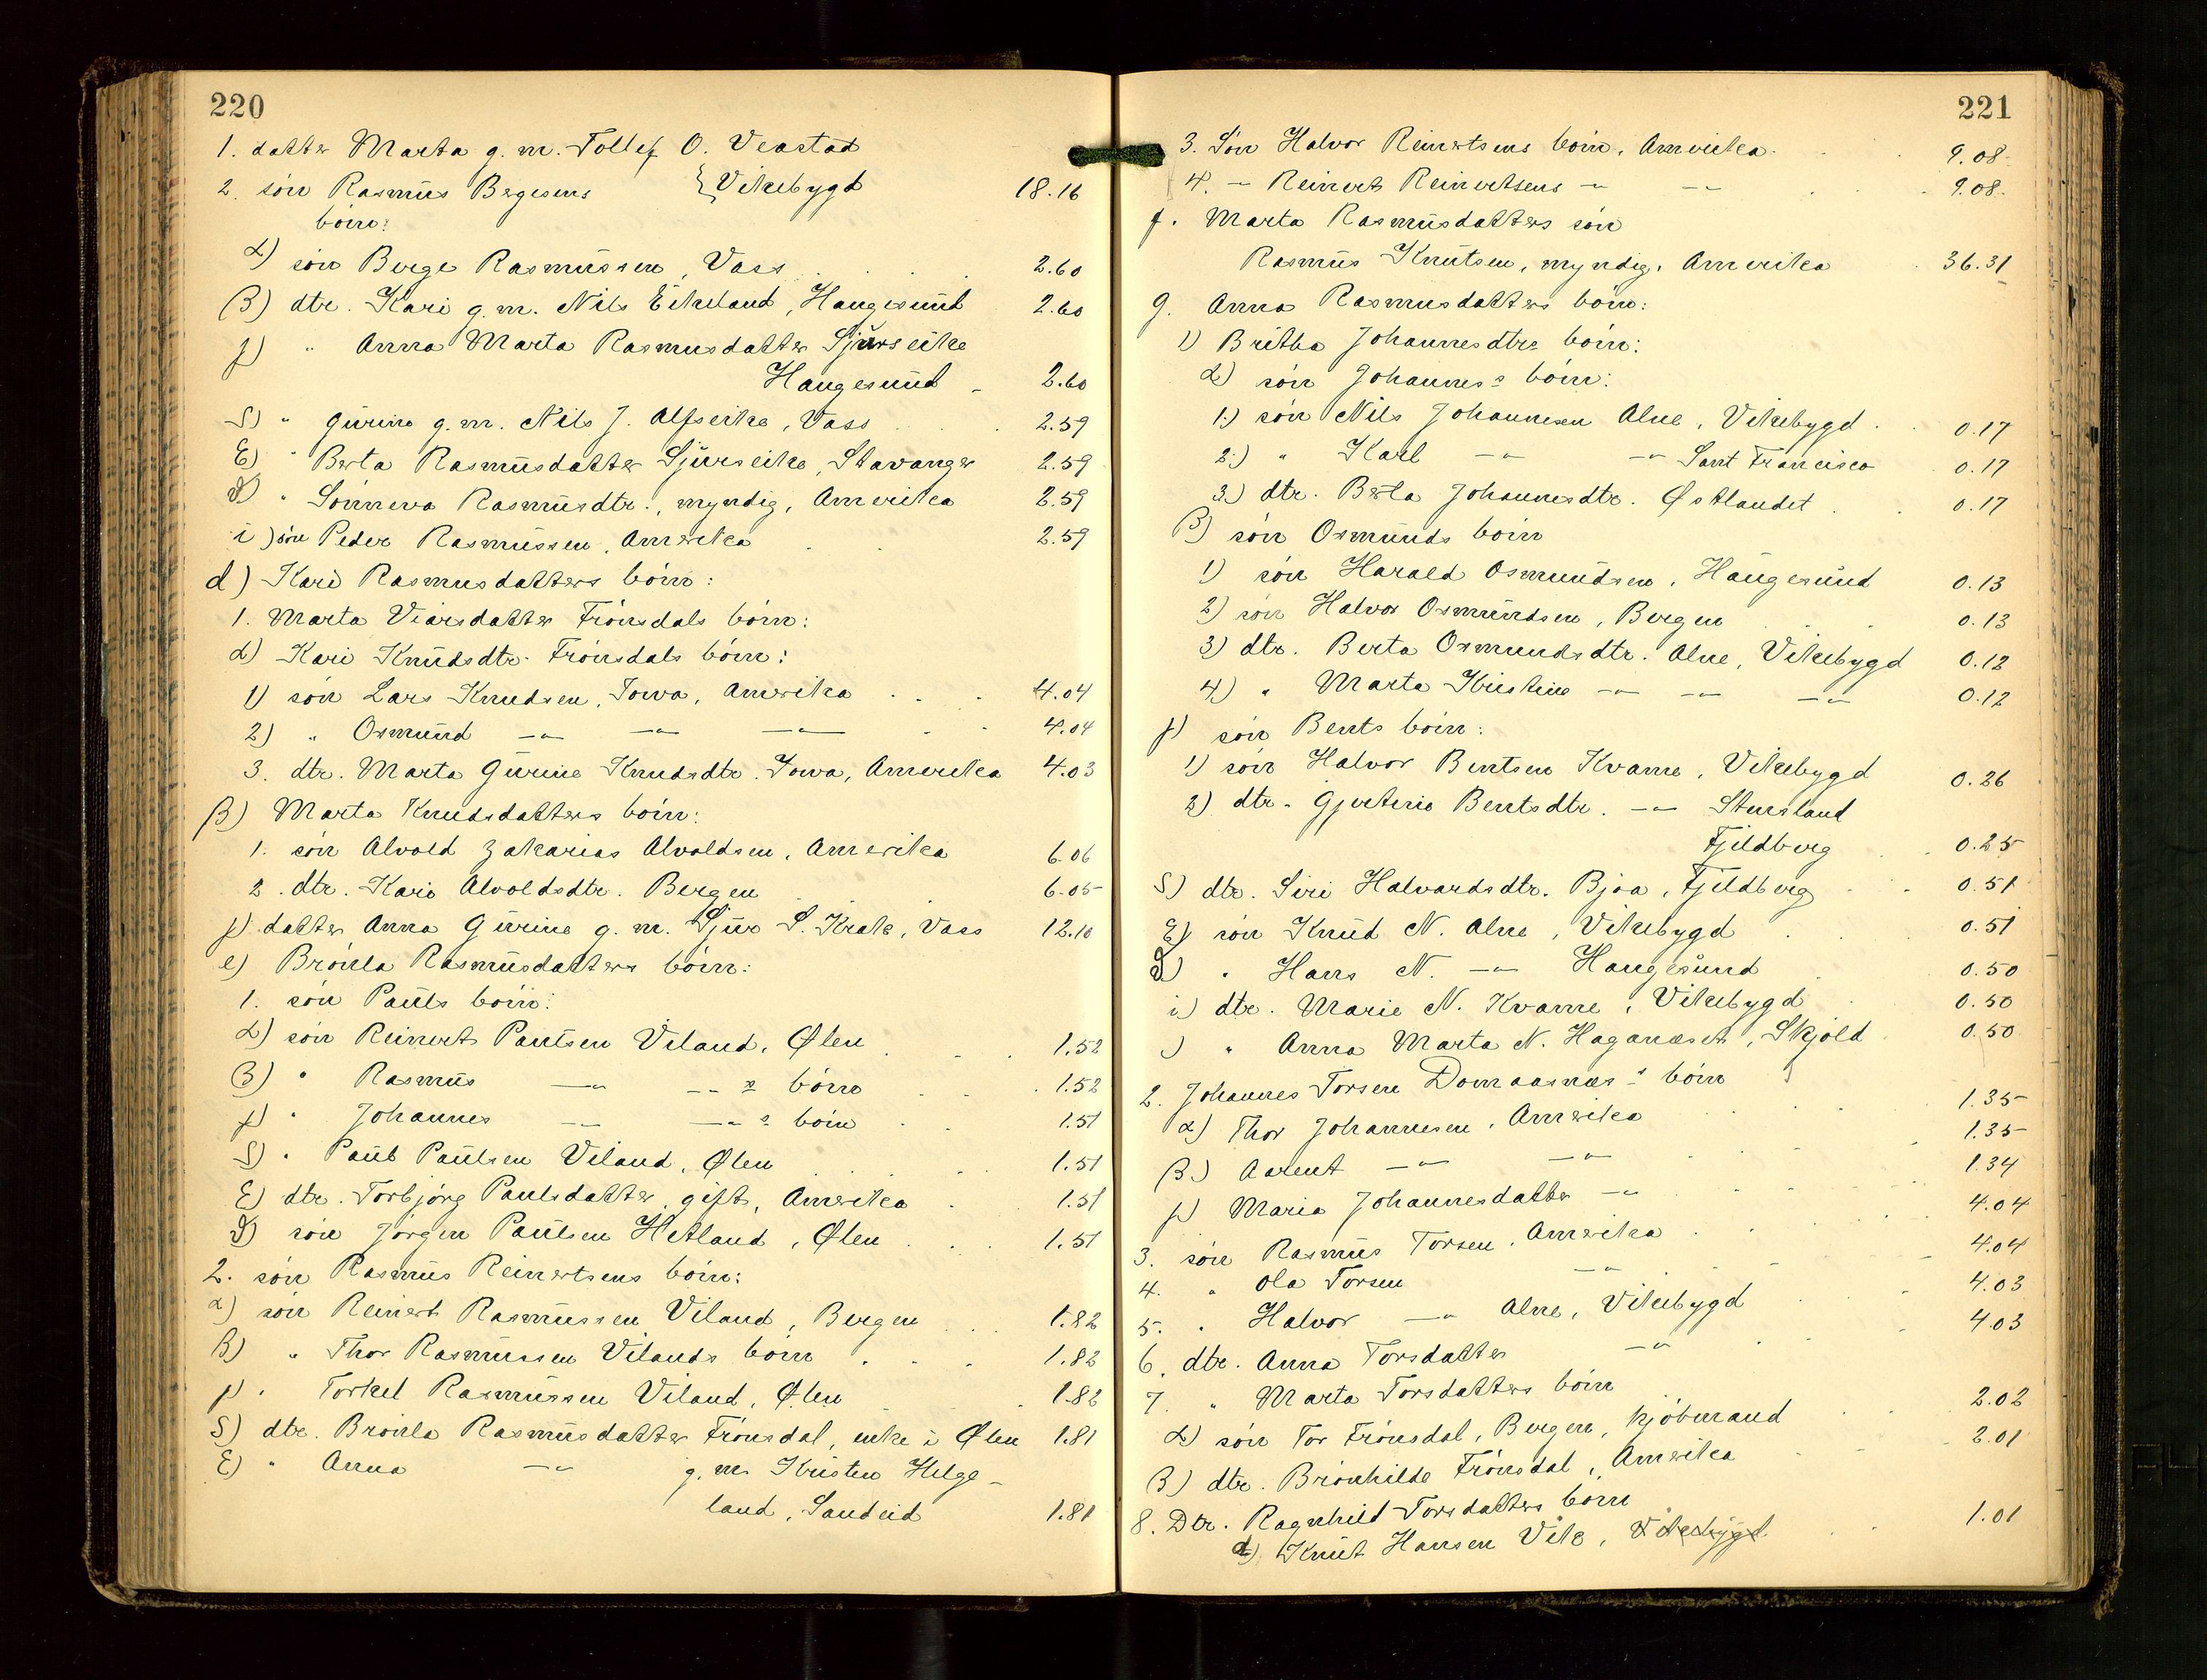 220
1. datter Marta g. m. Tollef O. Veastad
2. søn Rasmus Bergesens } Vikebygd 18.16
børn:
α) søn Berge Rasmussen, Vass 2.60
β) dtr. Kari g. m. Nils Eikeland, Haugesund 2.60
γ) " Anna Marta Rasmusdatter Sjurseike
Haugesund 2.60
δ) " Gurine g. m. Nils J. Alfseike, Vass 2.59
ε) " Berta Rasmusdatter Sjurseike, Stavanger 2.59
ϑ) " Sønneva Rasmusdtr., myndig, Amerika 2.59
i) søn Peder Rasmussen, Amerika 2.59
d) Kari Rasmusdatters børn:
1. Marta Viarsdatter Frønsdals børn:
α) Kari Knudsdtr. Frønsdals børn:
1) søn Lars Knudsen, Iowa, Amerika 4.04
2) " Osmund —"— —"— —"— 4.04
3. dtr. Marta Gurine Knudsdtr. Iowa, Amerika 4.03
β) Marta Knudsdatters børn:
1. søn Alvold Zakarias Alvoldsen, Amerika 6.06
2. dtr. Kari Alvoldsdtr. Bergen 6.05
γ) datter Anna Gurine g. m. Sjur S. Krake, Vass 12.10
e) Brønla Rasmusdatters børn:
1. søn Pauls børn:
α) søn Reinert Paulsen Viland, Ølen 1.52
β) " Rasmus —"— —"— s børn 1.52
γ) " Johannes —"— —"— s børn 1.51
δ) " Paul Paulsen Viland, Ølen 1.51
ε) dtr. Torbjørg Paulsdatter, gift, Amerika 1.51
ϑ) søn Jørgen Paulsen Hetland, Ølen 1.51
2. søn Rasmus Reinertsens børn:
α) søn Reinert Rasmussen Viland, Bergen 1.82
β) " Thor Rasmussen Vilands børn 1.82
γ) " Torkel Rasmussen Viland, Ølen 1.82
δ) dtr. Brønla Rasmusdatter Frønsdal, enke i Ølen 1.81
ε) " Anna —"— g. m. Kristen Helge-
land, Sandeid 1.81
221
3. Søn Halvor Reinertsens børn, Amerika 9.08
4. — Reinert Reinertsens —"— —"— 9.08
f. Marta Rasmusdatters søn
Rasmus Knutsen, myndig, Amerika 36.31
g. Anna Rasmusdatters børn:
1) Britha Johannesdtrs børn:
α) søn Johannes's børn:
1.) søn Nils Johannesen Alne, Vikebygd 0.17
2.) " Karl —"— —"— Sant Francisco 0.17
3.) dtr. Berta Johannesdtr. Østlandet 0.17
β) søn Osmunds børn
1) søn Harald Osmundsen, Haugesund 0.13
2) søn Halvor Osmundsen, Bergen 0.13
3) dtr. Berta Osmundsdtr. Alne, Vikebygd 0.12
4) " Marta Kristine —"— —"— —"— 0.12
γ) søn Bents børn:
1) søn Halvor Bentsen Kvame, Vikebygd 0.26
2) dtr. Gjertine Bentsdtr. —"— Stursland
Fjeldberg 0.25
δ) dtr. Siri Halvardsdtr. Bjoa, Fjeldberg 0.51
ε) søn Knud N. Alne, Vikebygd 0.51
ϑ) " Hans N. —"— Haugesund 0.50
i) dtr. Marie N. Kvame, Vikebygd 0.50
") " Anna Marta N. Haganæset, Skjold 0.50
2. Johannes Torsen Domaasnæs's børn
α) Thor Johannesen, Amerika 1.35
β) Aarent —"— —"— 1.35
γ) Maria Johannesdatter —"— 1.34
3. søn Rasmus Torsen, Amerika 4.04
4. " Ola Torsen —"— 4.04
5. " Halvor —"— Alne, Vikebygd 4.03
6. dtr. Anna Torsdatter —"— 4.03
7. " Marta Torsdatters børn
α) søn Tor Frønsdal, Bergen, kjøbmand 2.02
β) dtr. Brønhilde Frønsdal, Amerika 2.01
8. Dtr. Ragnhild Torsdatters børn
α) Knut Hansen Vik, Vikebygd 1.01